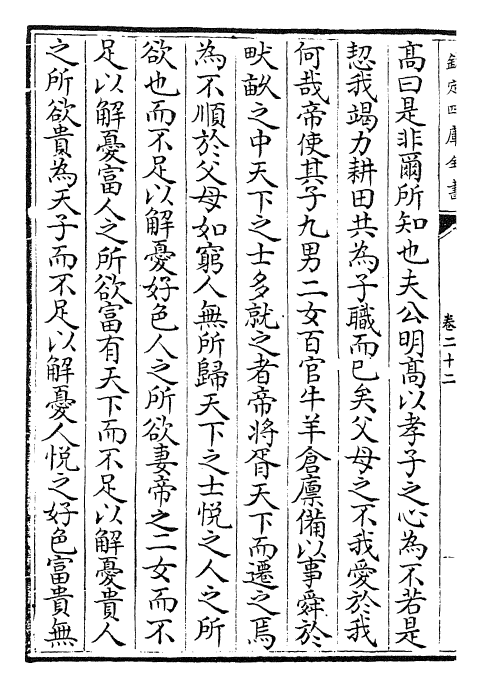 欽定四庫全書
卷二十二
高曰是非爾所知也夫公明高以孝子之心為不若是
恝我竭力耕田共為子職而已矣父母之不我愛於我
何哉帝使其子九男二女百官牛羊倉廪備以事舜於
畎畝之中天下之士多就之者帝將胥天下而遷之焉
為不順於父母如窮人無所歸天下之士悅之人之所
欲也而不足以解憂好色人之所欲妻帝之二女而不
足以解憂富人之所欲富有天下而不足以解憂貴人
之所欲貴為天子而不足以解憂人悅之好色富貴無